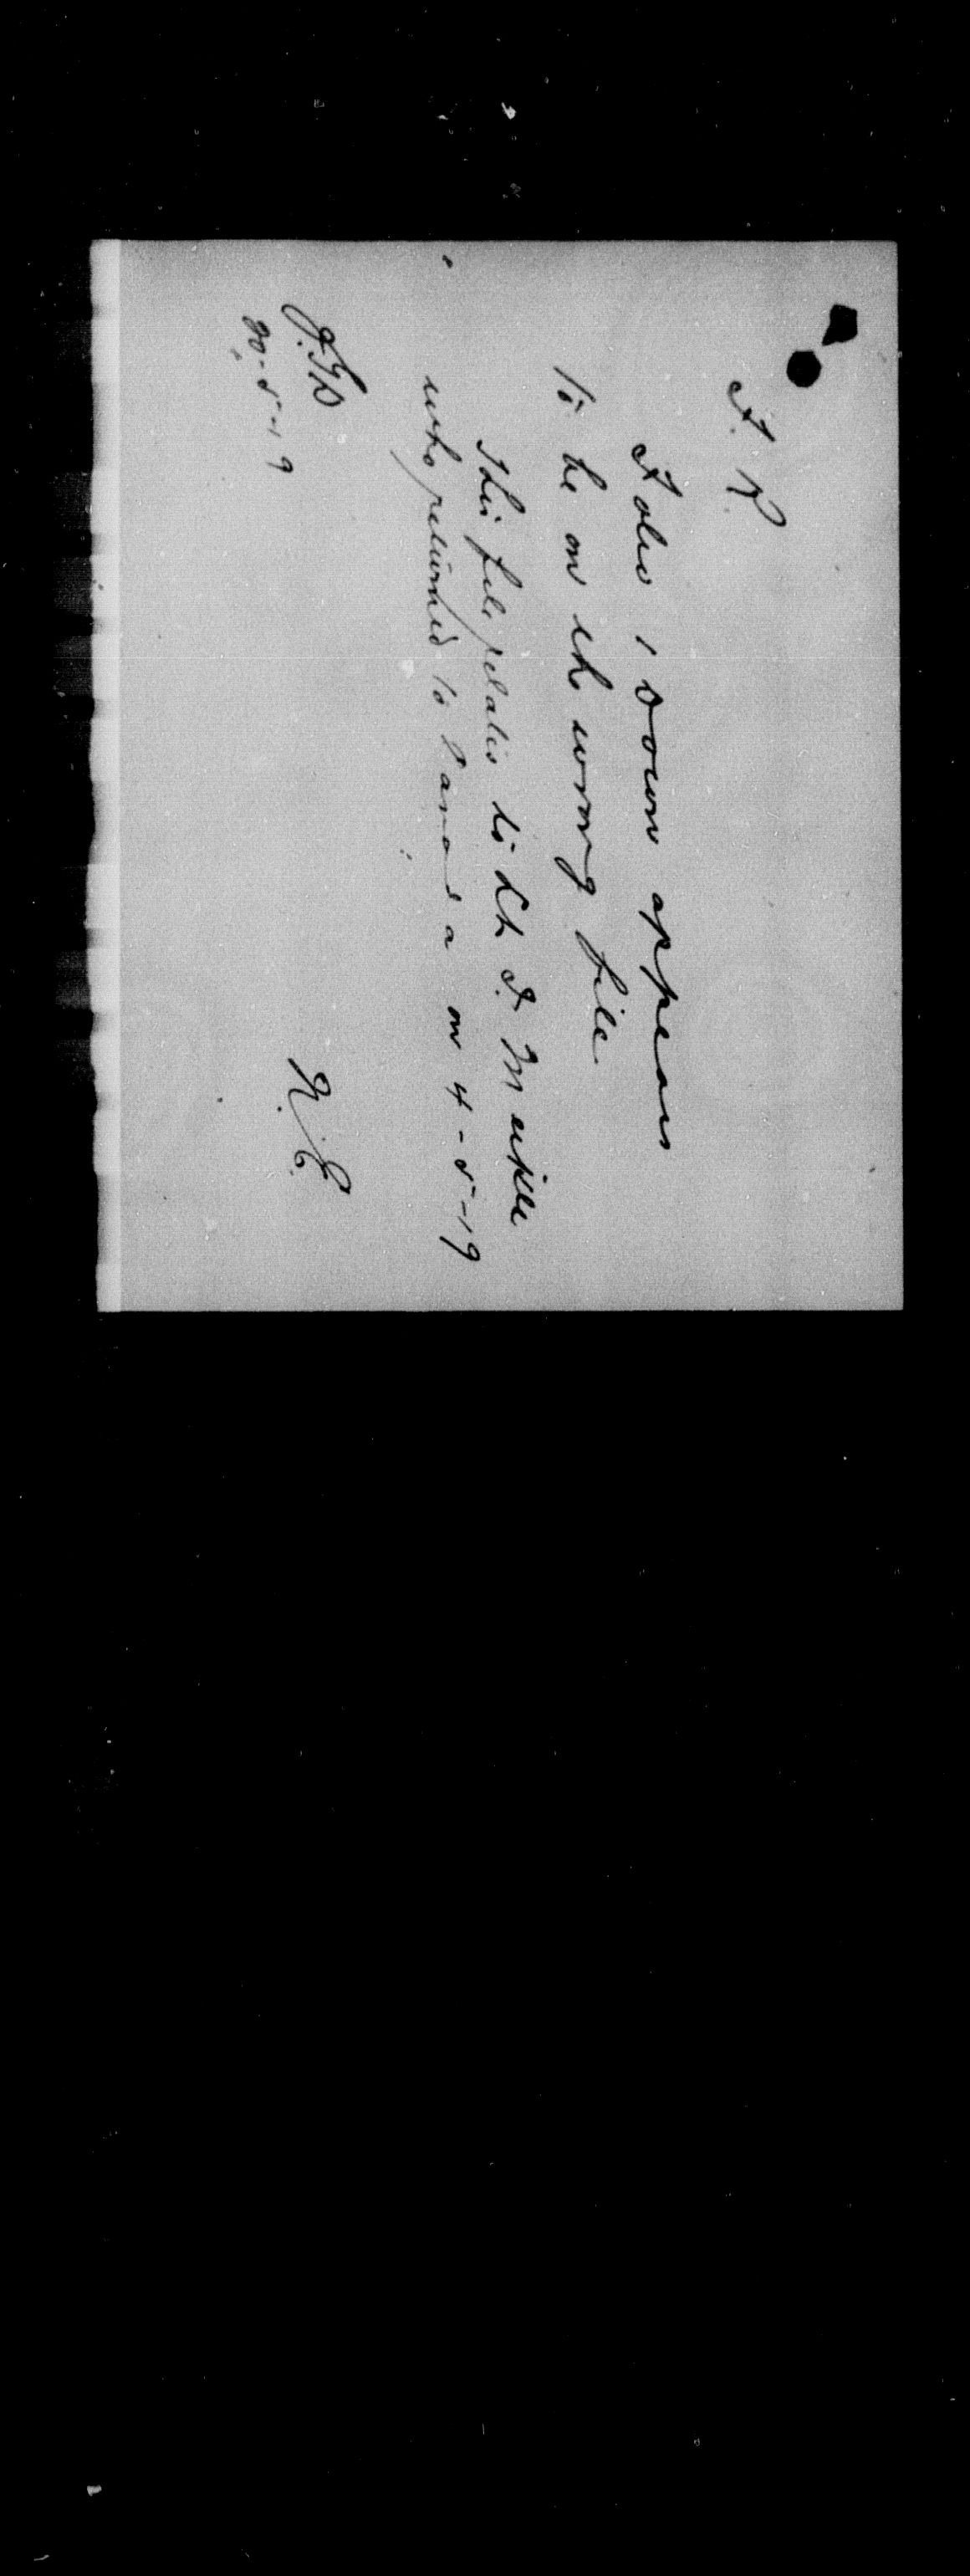 A. R.
Folio 1 down appears
to be on the wrong file.
This file relates to Lt D. Meikle
who returned to Canada on 4-5-19
N. E.
20-5-19